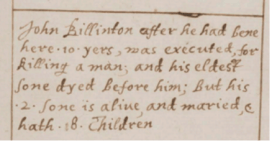 John Billinton after he had bene
here ·10· yers, was executed, for
killing a man; and his eldest
sone dyed before him; But his
·2· sone is alive, and maried, &
hath ·18· Children